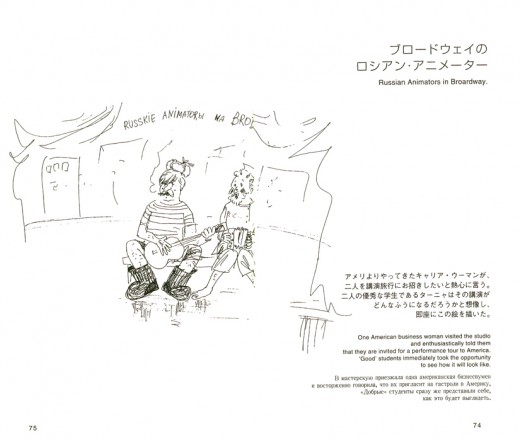 ブロードウェイの
ロシアン・アニメーター
Russian Animators in Broardway.
RUSSKIE ANIMATORW NA BROD
アメリよりやってきたキャリア・ウーマンが、
二人を講演旅行にお招きしたいと熱心に言う。
二人の優秀な学生であるターニャはその講演が
どんなふうになるだろうかと想像し、
即座にこの絵を描いた。
One American business woman visited the studio
and enthusiastically told them
that they are invited for a performance tour to America.
'Good' students immediately took the opportunity
to see how it will look like.
В мастерскую приезжала одна американская бизнесвумен
и восторженно говорила, что их пригласят на гастроли в Америку,
«Добрые» студенты сразу же представили себе,
как это будет выглядеть.
75
74